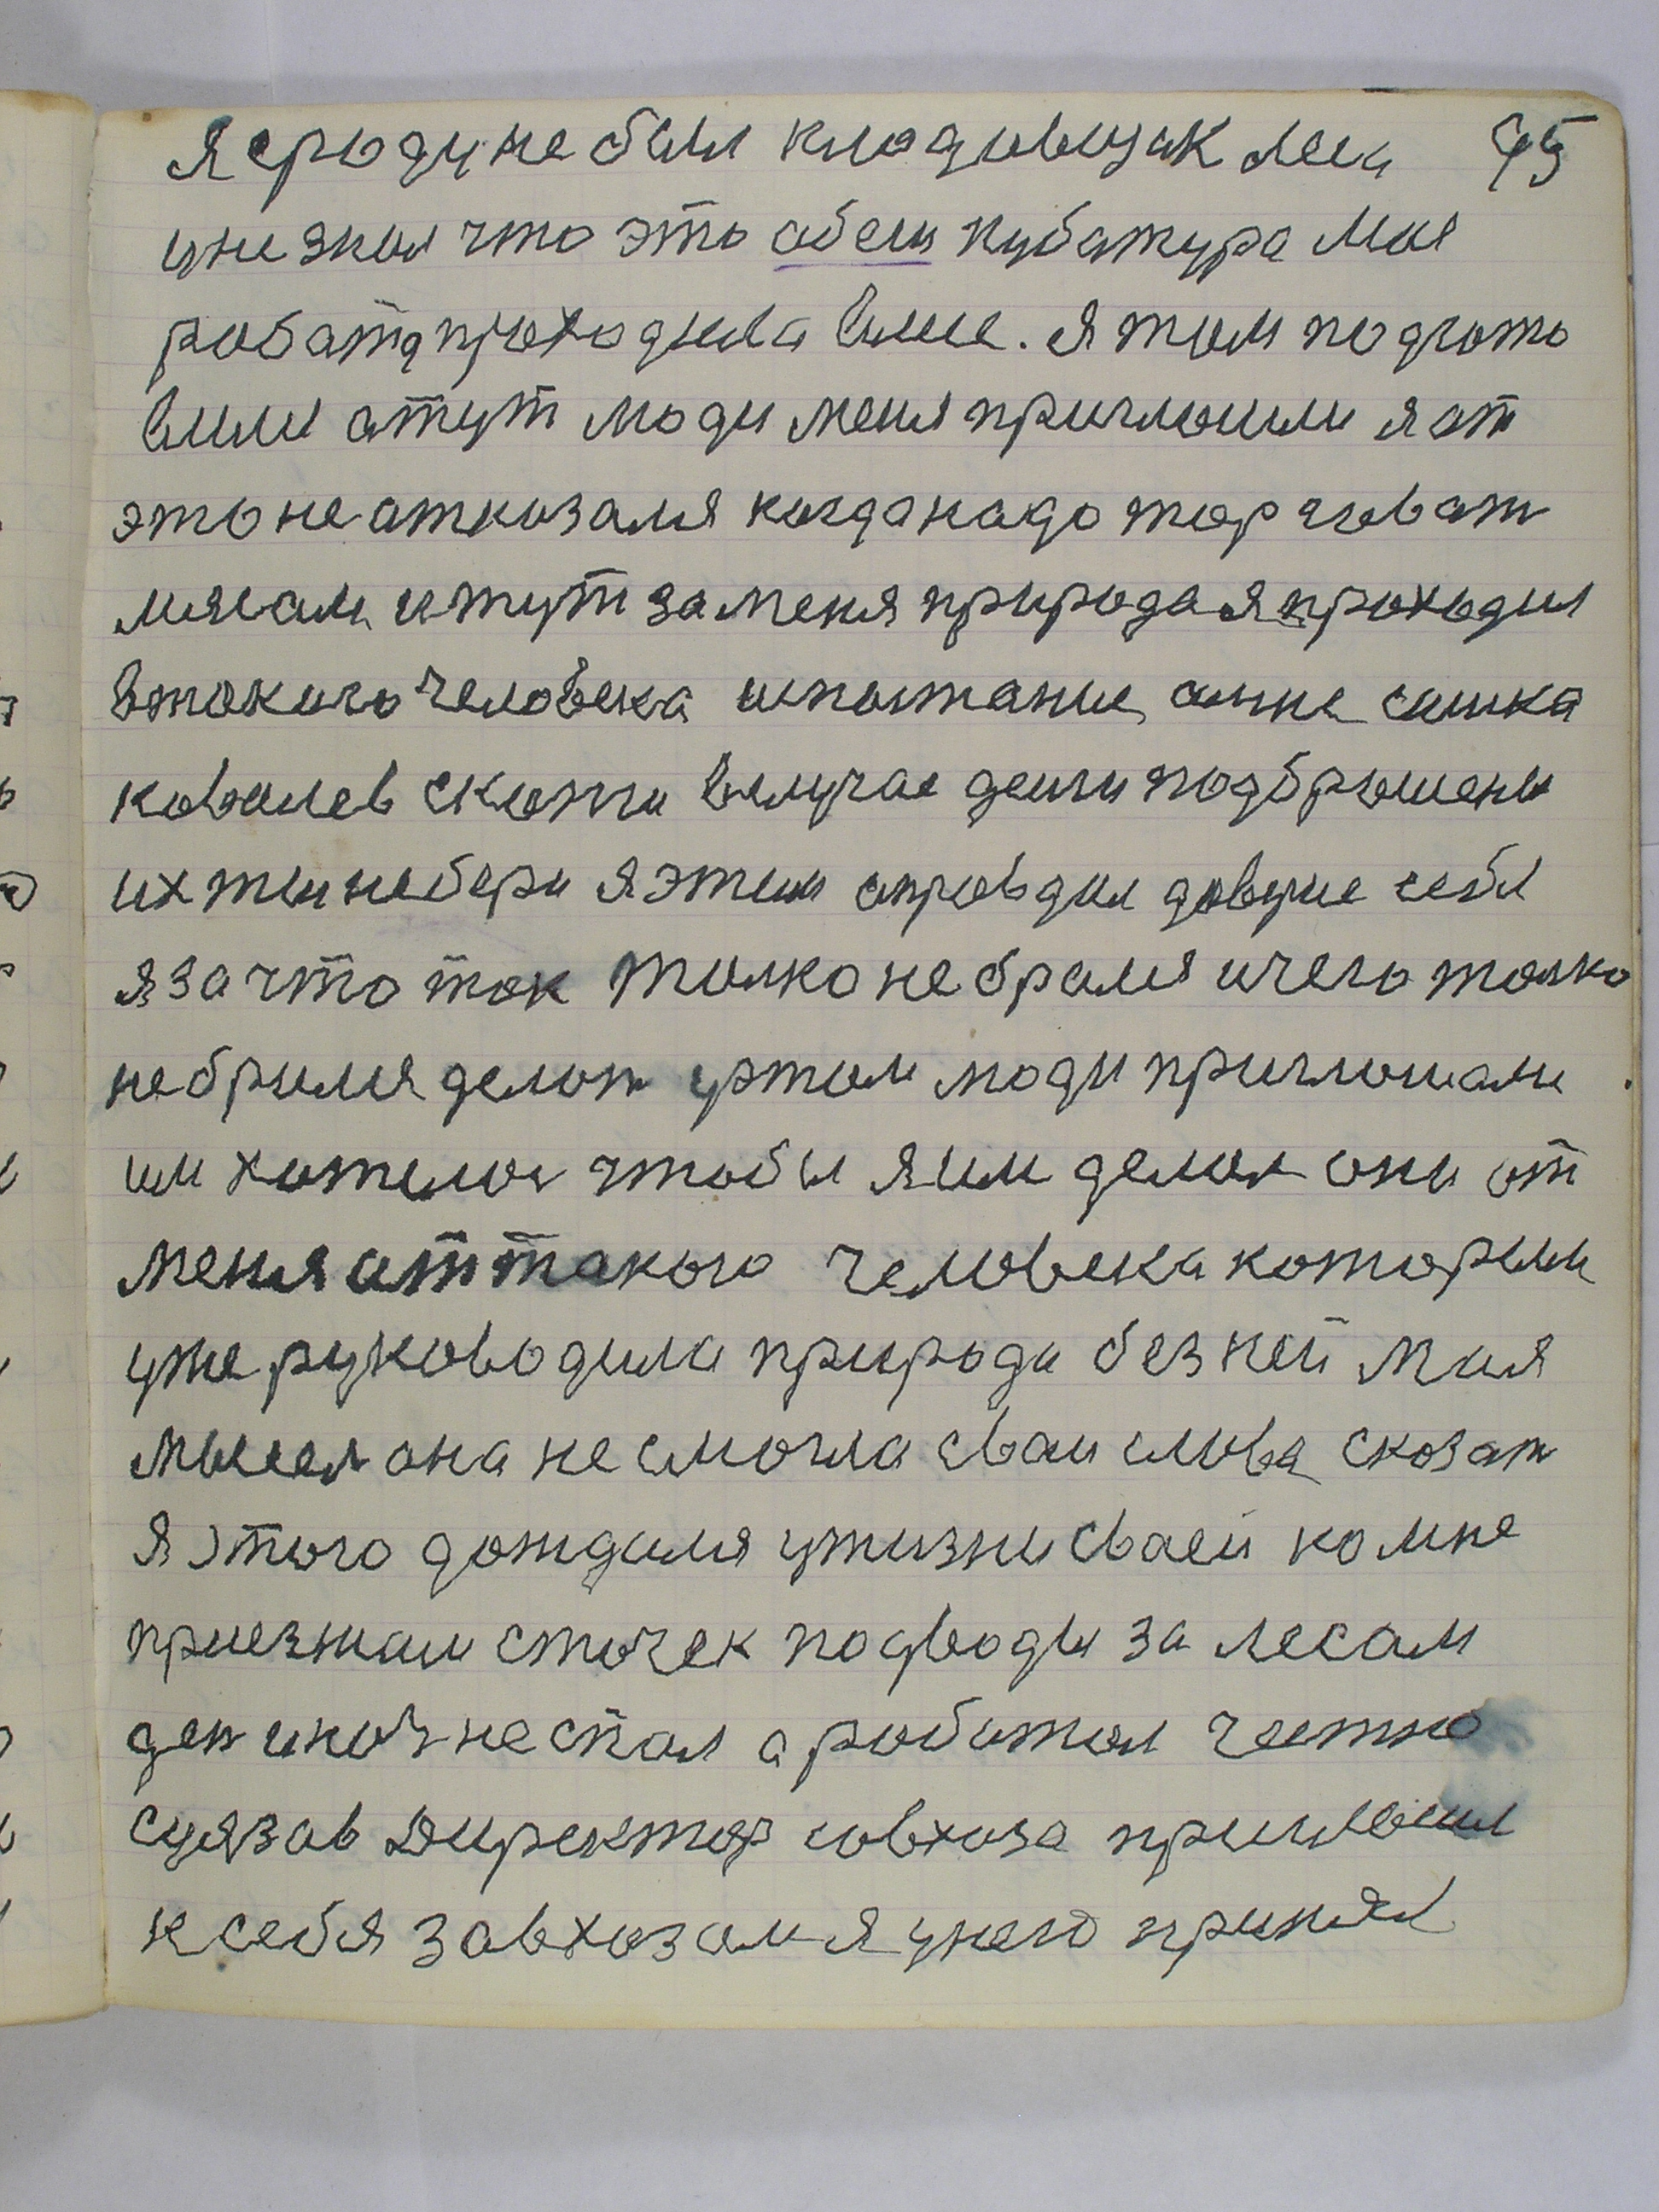 я сроду не был кладовщик леса 45
и не знал что это абем кубатура мая
работа проходила влесе. я там подгото
вили а тут люди меня пригласили я от
это не отказался когда надо торговат
мясам и тут за меня природа я проходил
в такого человека испытание а мне сашка
ковалев
их ты не бери я этим оправдал доверие себя
я за что так толко не брался и чего толко
не брался делат и этом люди приглошали
им хотелос чтобы я им делал они от
меня от такого человека которым
уже руководила природа без ней мая
мысел она не смогла сваи слова сказат
я этого дождался у жизни сваей ко мне
приезжали сточек подводы за лесам
ден и ноч не спал а работал честно
сразав директор совхоза пригласил
к себя завхозам я у него принял